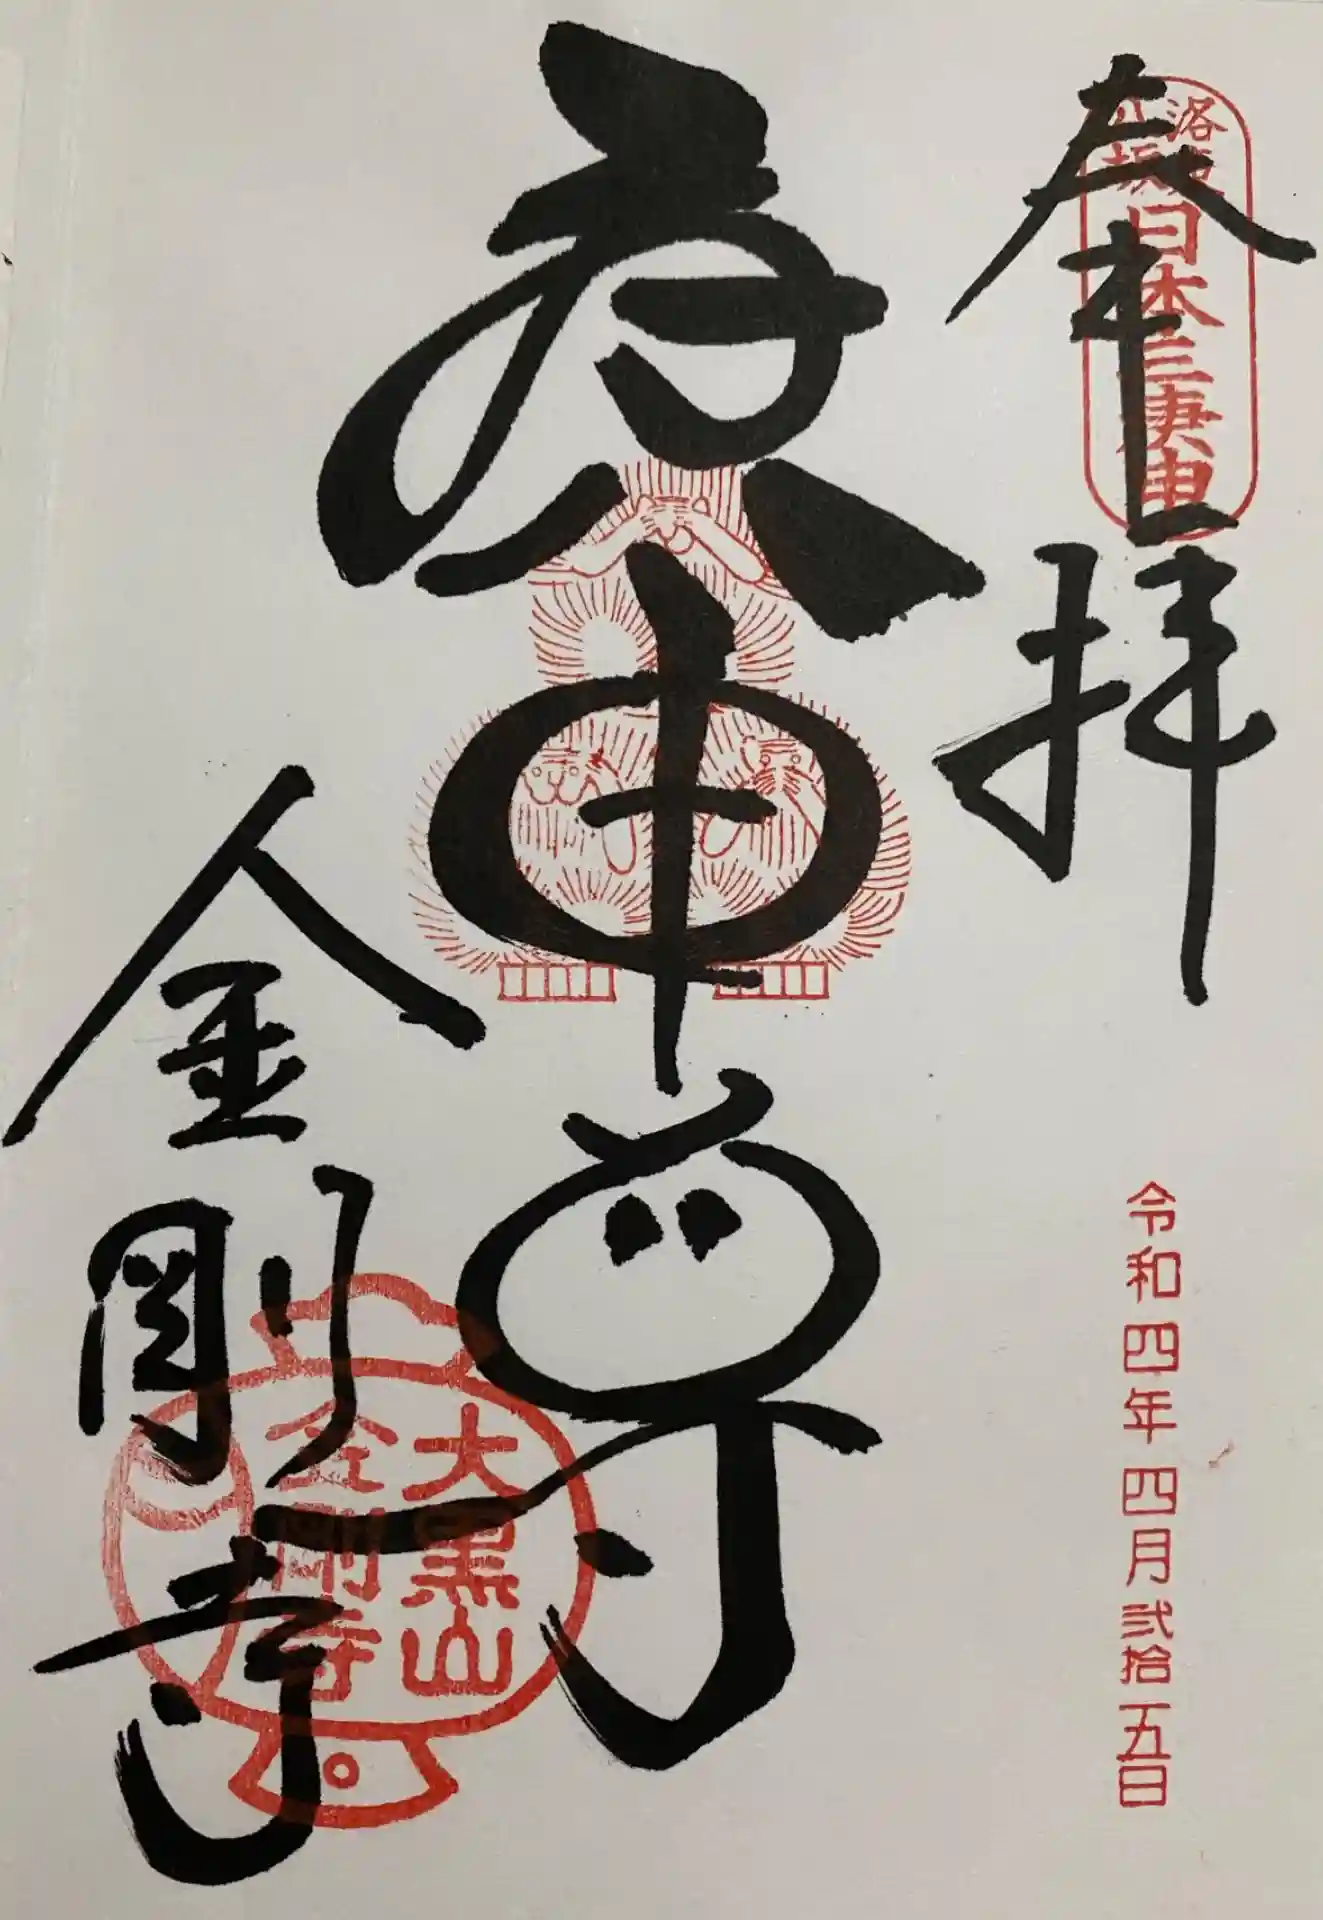 奉拝
洛東
八坂
日本三庚申
庚申尊
金剛寺
大黒山
金剛寺
令和四年四月弐拾五日